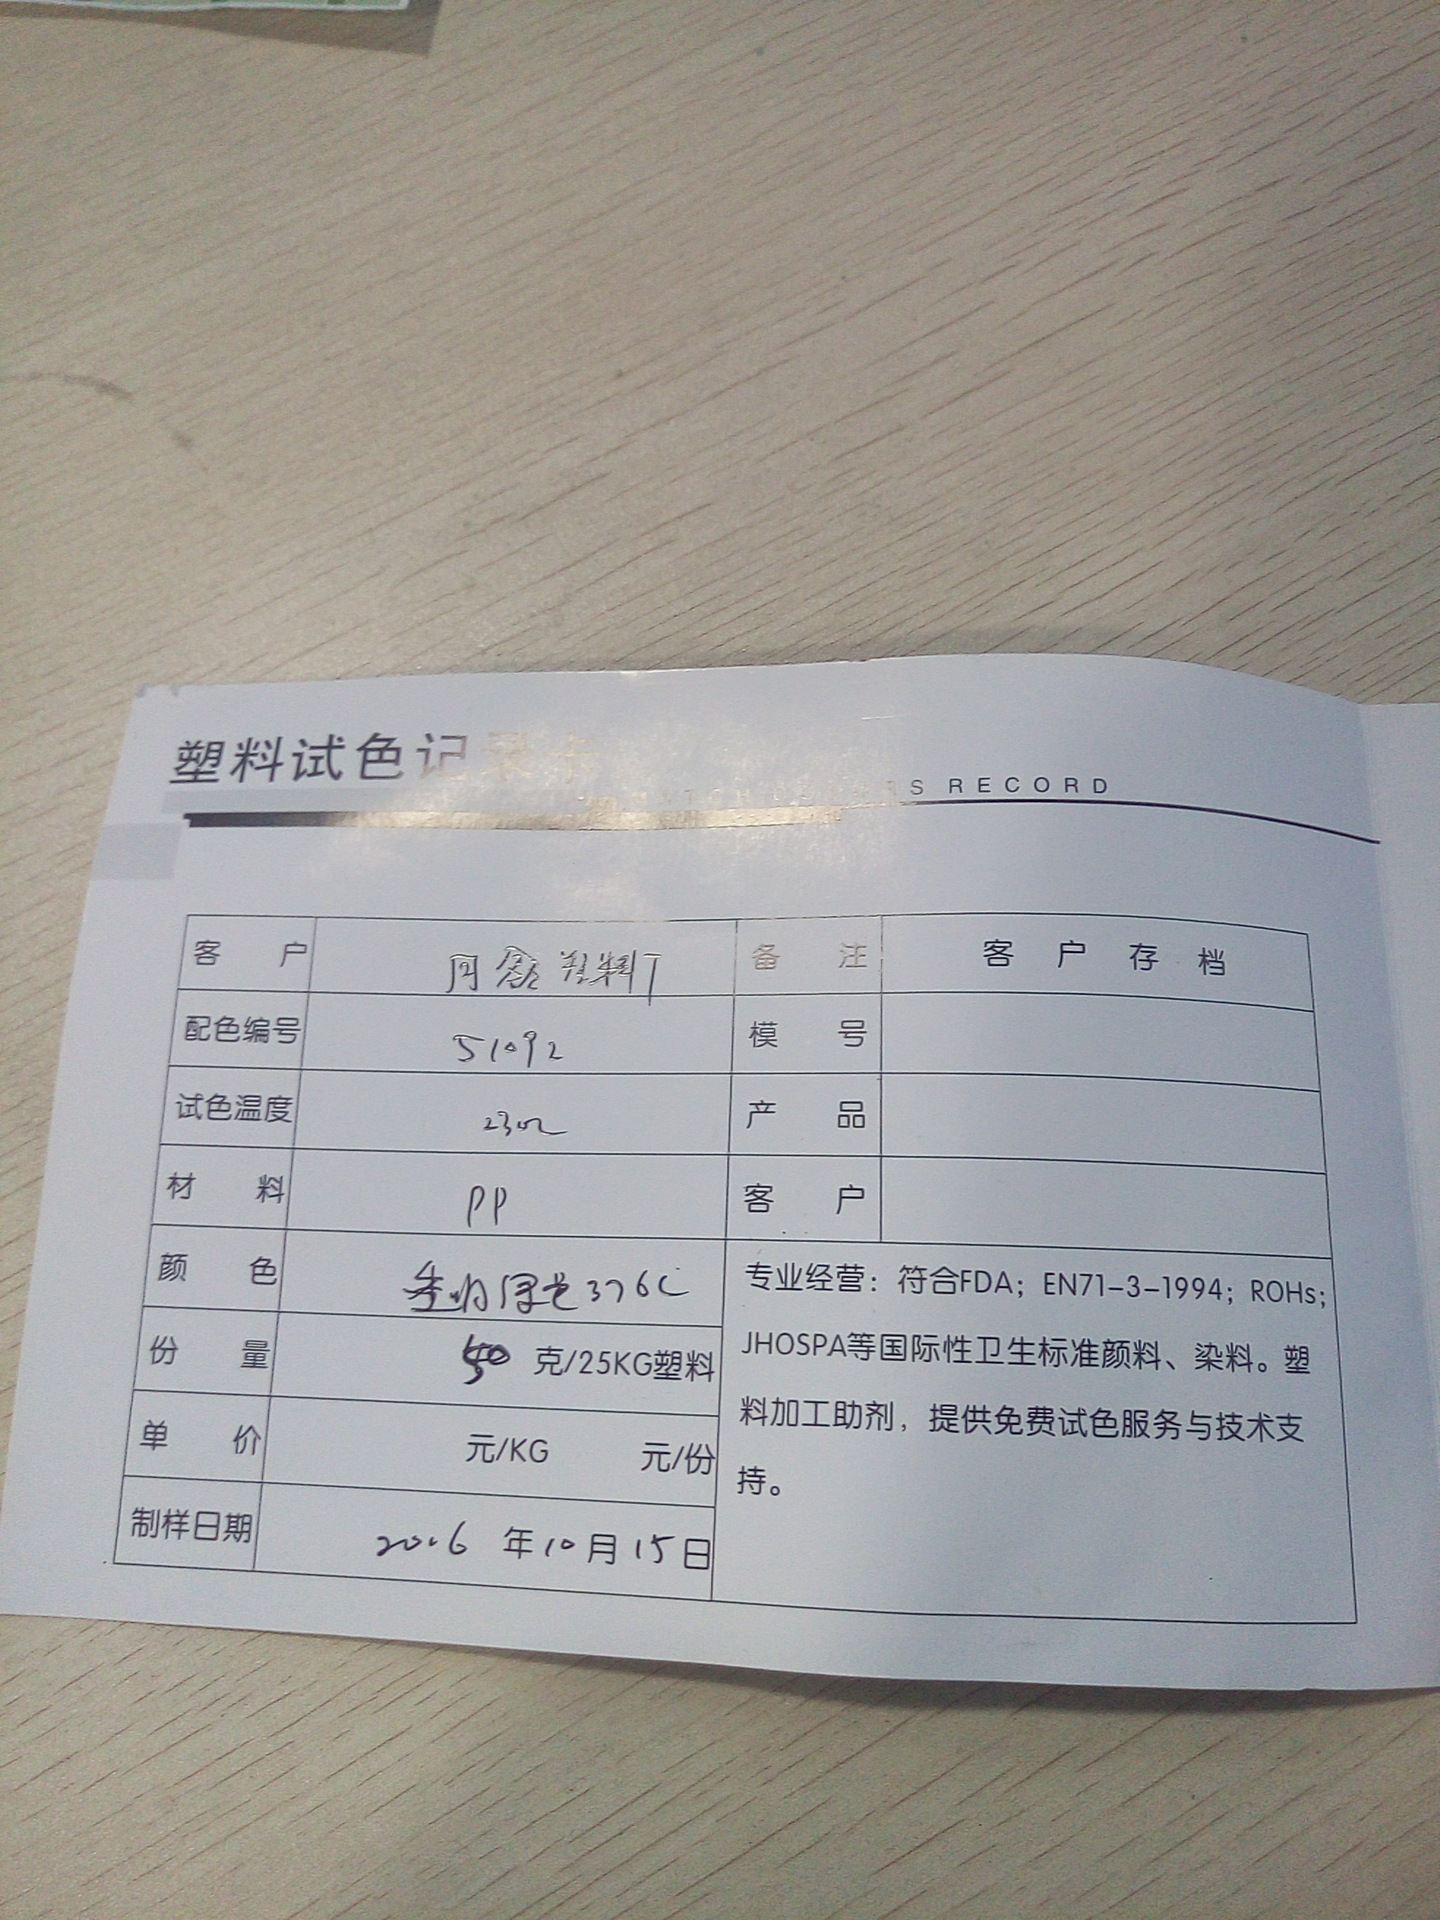 塑料试色记录卡
MATCH COLORS RECORD
客户 塑料厂 备注 客户存档
配色编号 51092 模号
试色温度 230℃ 产品
材料 PP 客户
颜色 绿色376C
份量 50 克/25KG塑料
单价 元/KG 元/份
制样日期 2016 年10月15日
专业经营：符合FDA；EN71-3-1994；ROHs；
JHOSPA等国际性卫生标准颜料、染料。塑
料加工助剂，提供免费试色服务与技术支
持。